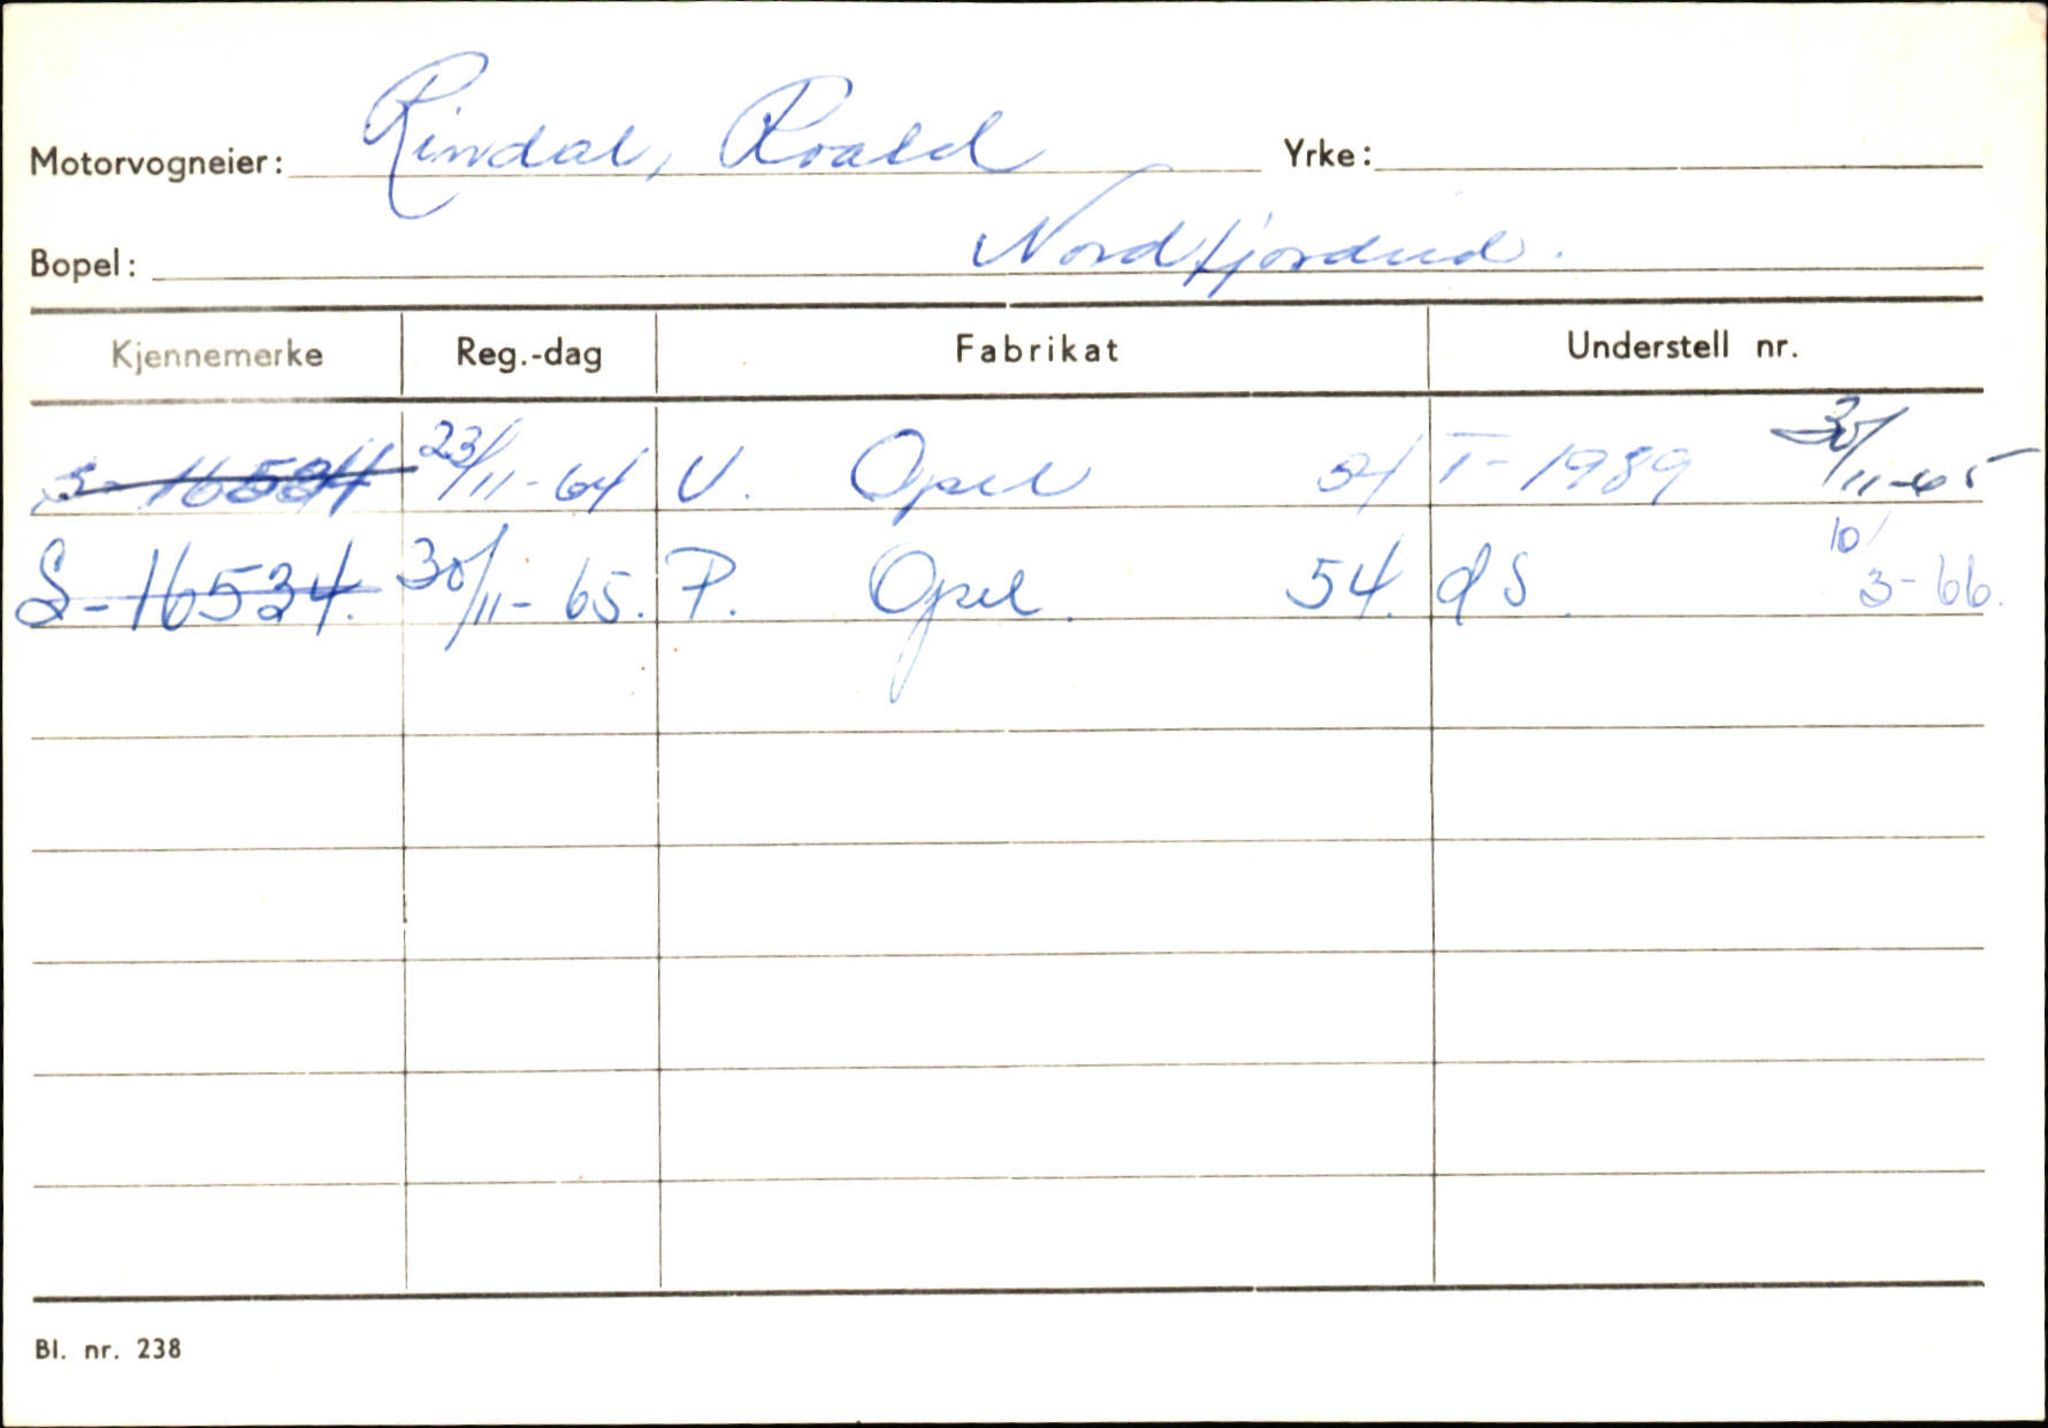 Motorvogneier: Rindal, Roald Yrke:
Bopel: Nordfjordeid.
Kjennemerke Reg.-dag Fabrikat Understell nr.
S-16534 23/11-64 V. Opel 54 T-1989 30/11-65
S-16534. 30/11-65. P. Opel. 54. d S. 10/3-66.
Bl. nr. 238